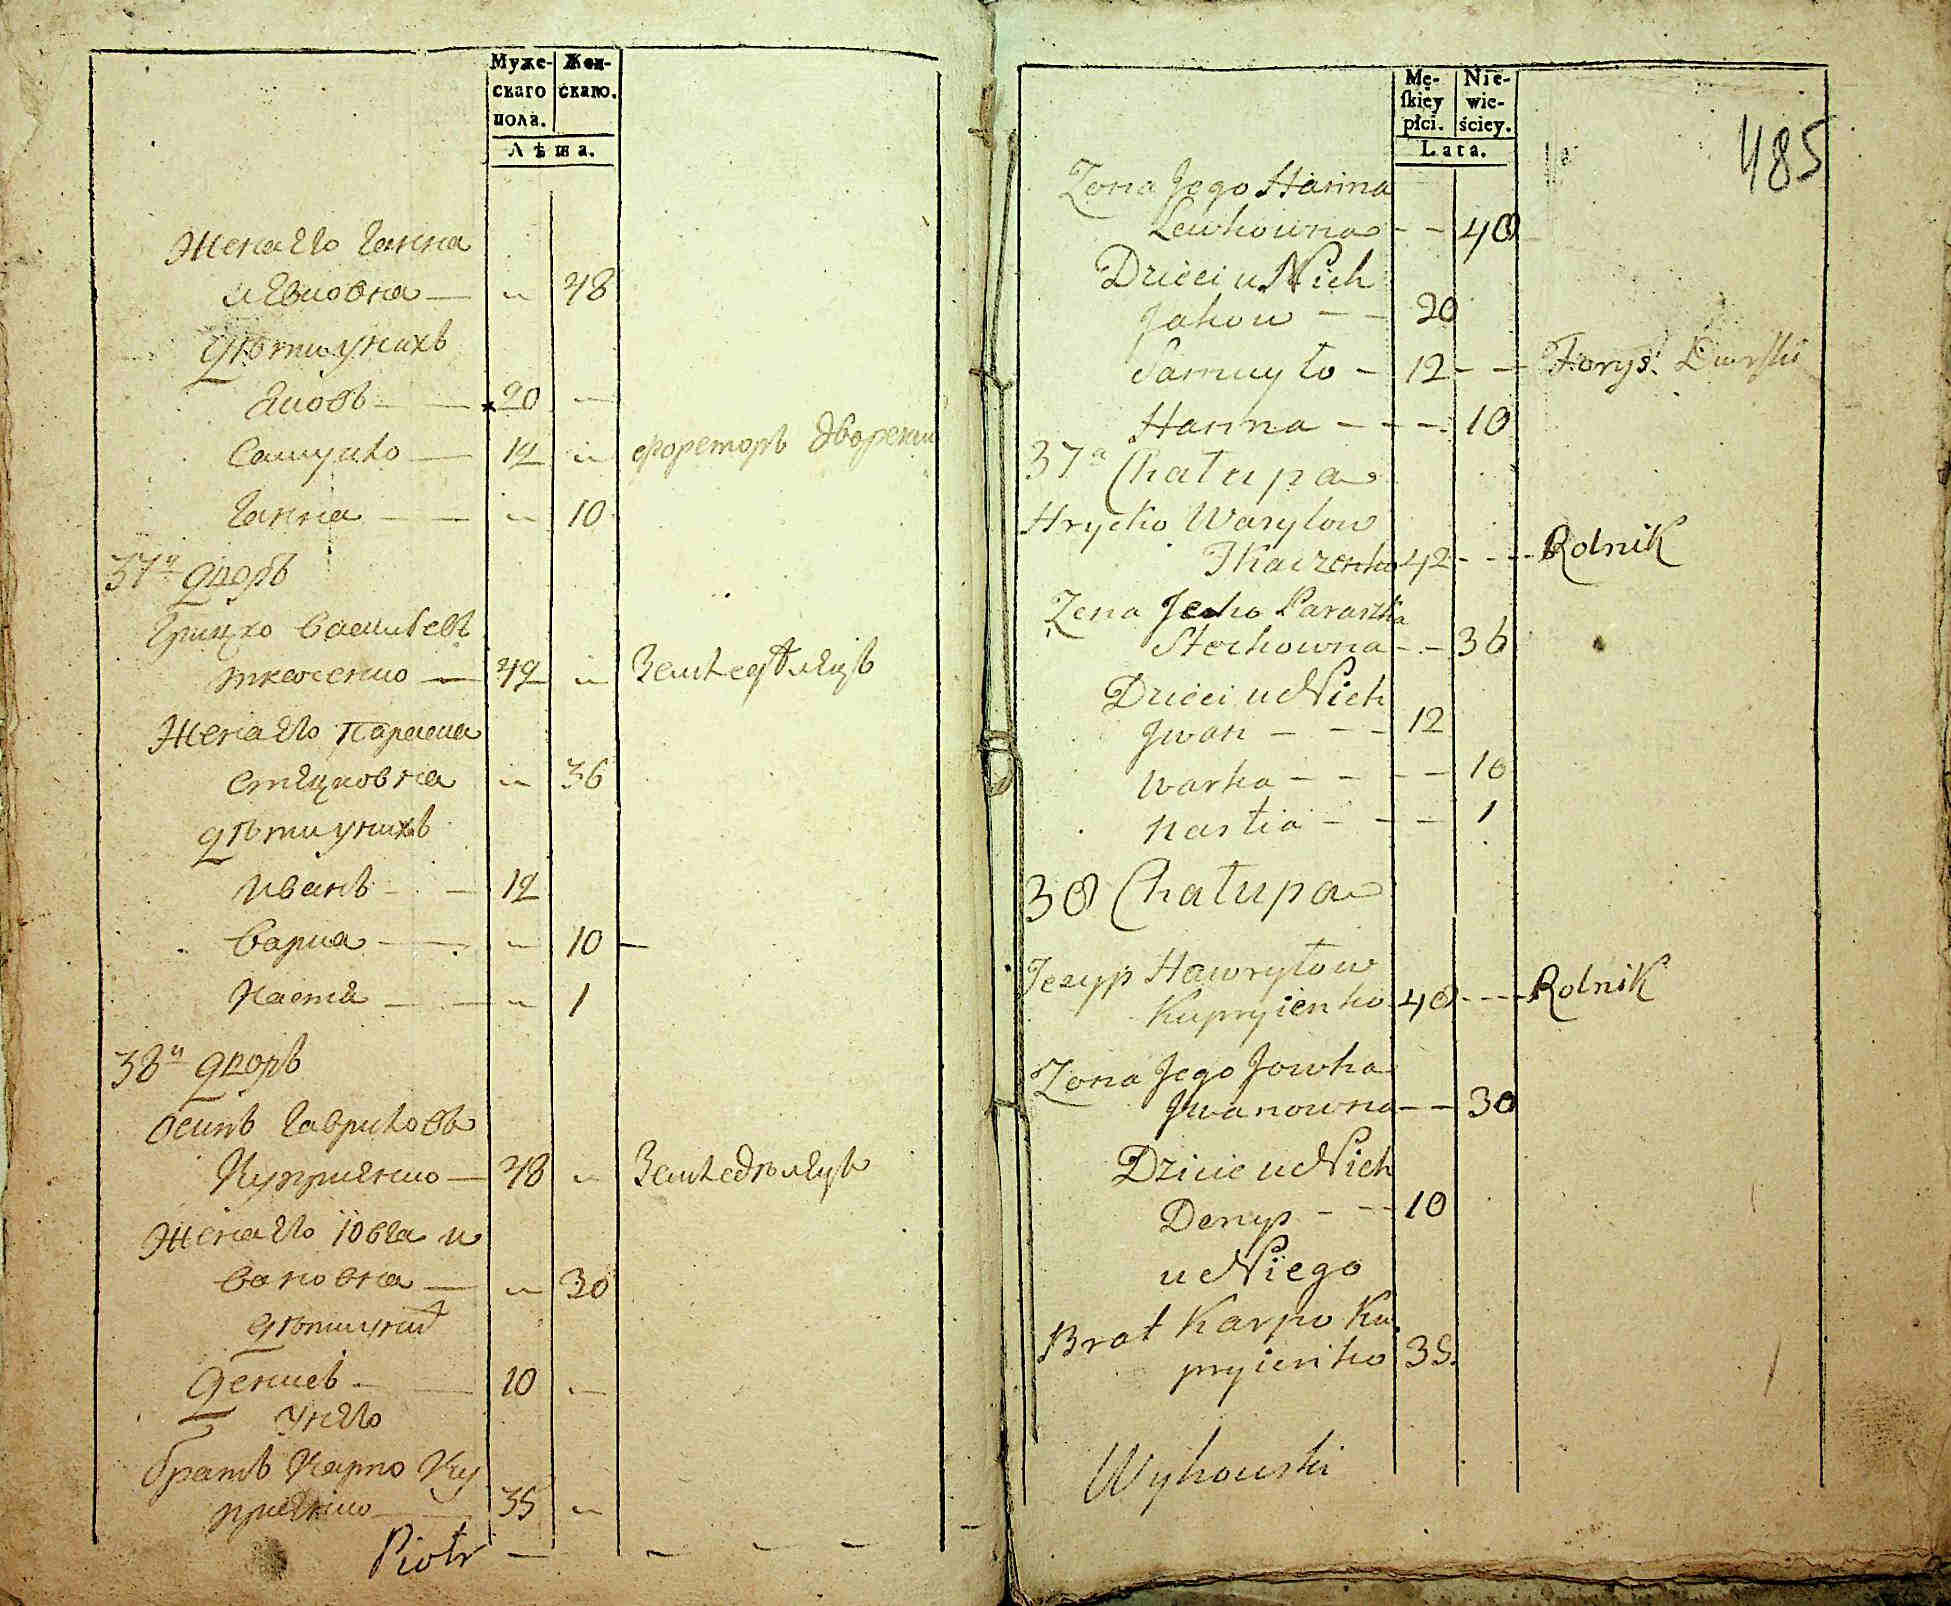 Муже-
скаго
пола.
Жен-
скаго.
Лѣта.
Жена Его Ганна
20
Самуило — 12 форейторъ дворский
Ганна — — 10
37й дворъ
Грицко Васильевъ
ткаченко — 42 Земледѣлецъ
Жена Его Параска
Стецковна 36
дѣти у нихъ
Иванъ — 12
Варка — 10 —
Настя — 1
38й дворъ
Осипъ Гавриловъ
Куприенко — 48 Земледѣлецъ
Жена Его Ювга И
вановна — 30
дѣти у них
Денисъ — 10
у него
братъ Карпо Ку
приенко — 35
Piotr — — — —
Mę-
ſkiey
płci.
Nie-
wie-
ściey.
Lata.
485
Zona Jego Hanna
Lewkowna - - 48
Dzieci u Nich
Jakow - - 20
Samuyło - 12 - - Forys: Dworſki
Hanna - - - 10
37a Chałupa
Hrycko Wasylow
Tkaczenko 42 - - - Rolnik
Zena Jeho Paraska
Stechowna - - 36
Dzieci u Nich
Jwan - - - 12
Warka - - - - 10
Nastia - - - 1
38 Chałupa
Jezyp Hawryłow
Kupryienko 48 - - - Rolnik
Zona Jego Jowha
Jwanowna - - 30
Dzicie u Nich
Denys - - - 10
u Niego
Brat Karpo Ku
pryienko 35.
Wyhowski